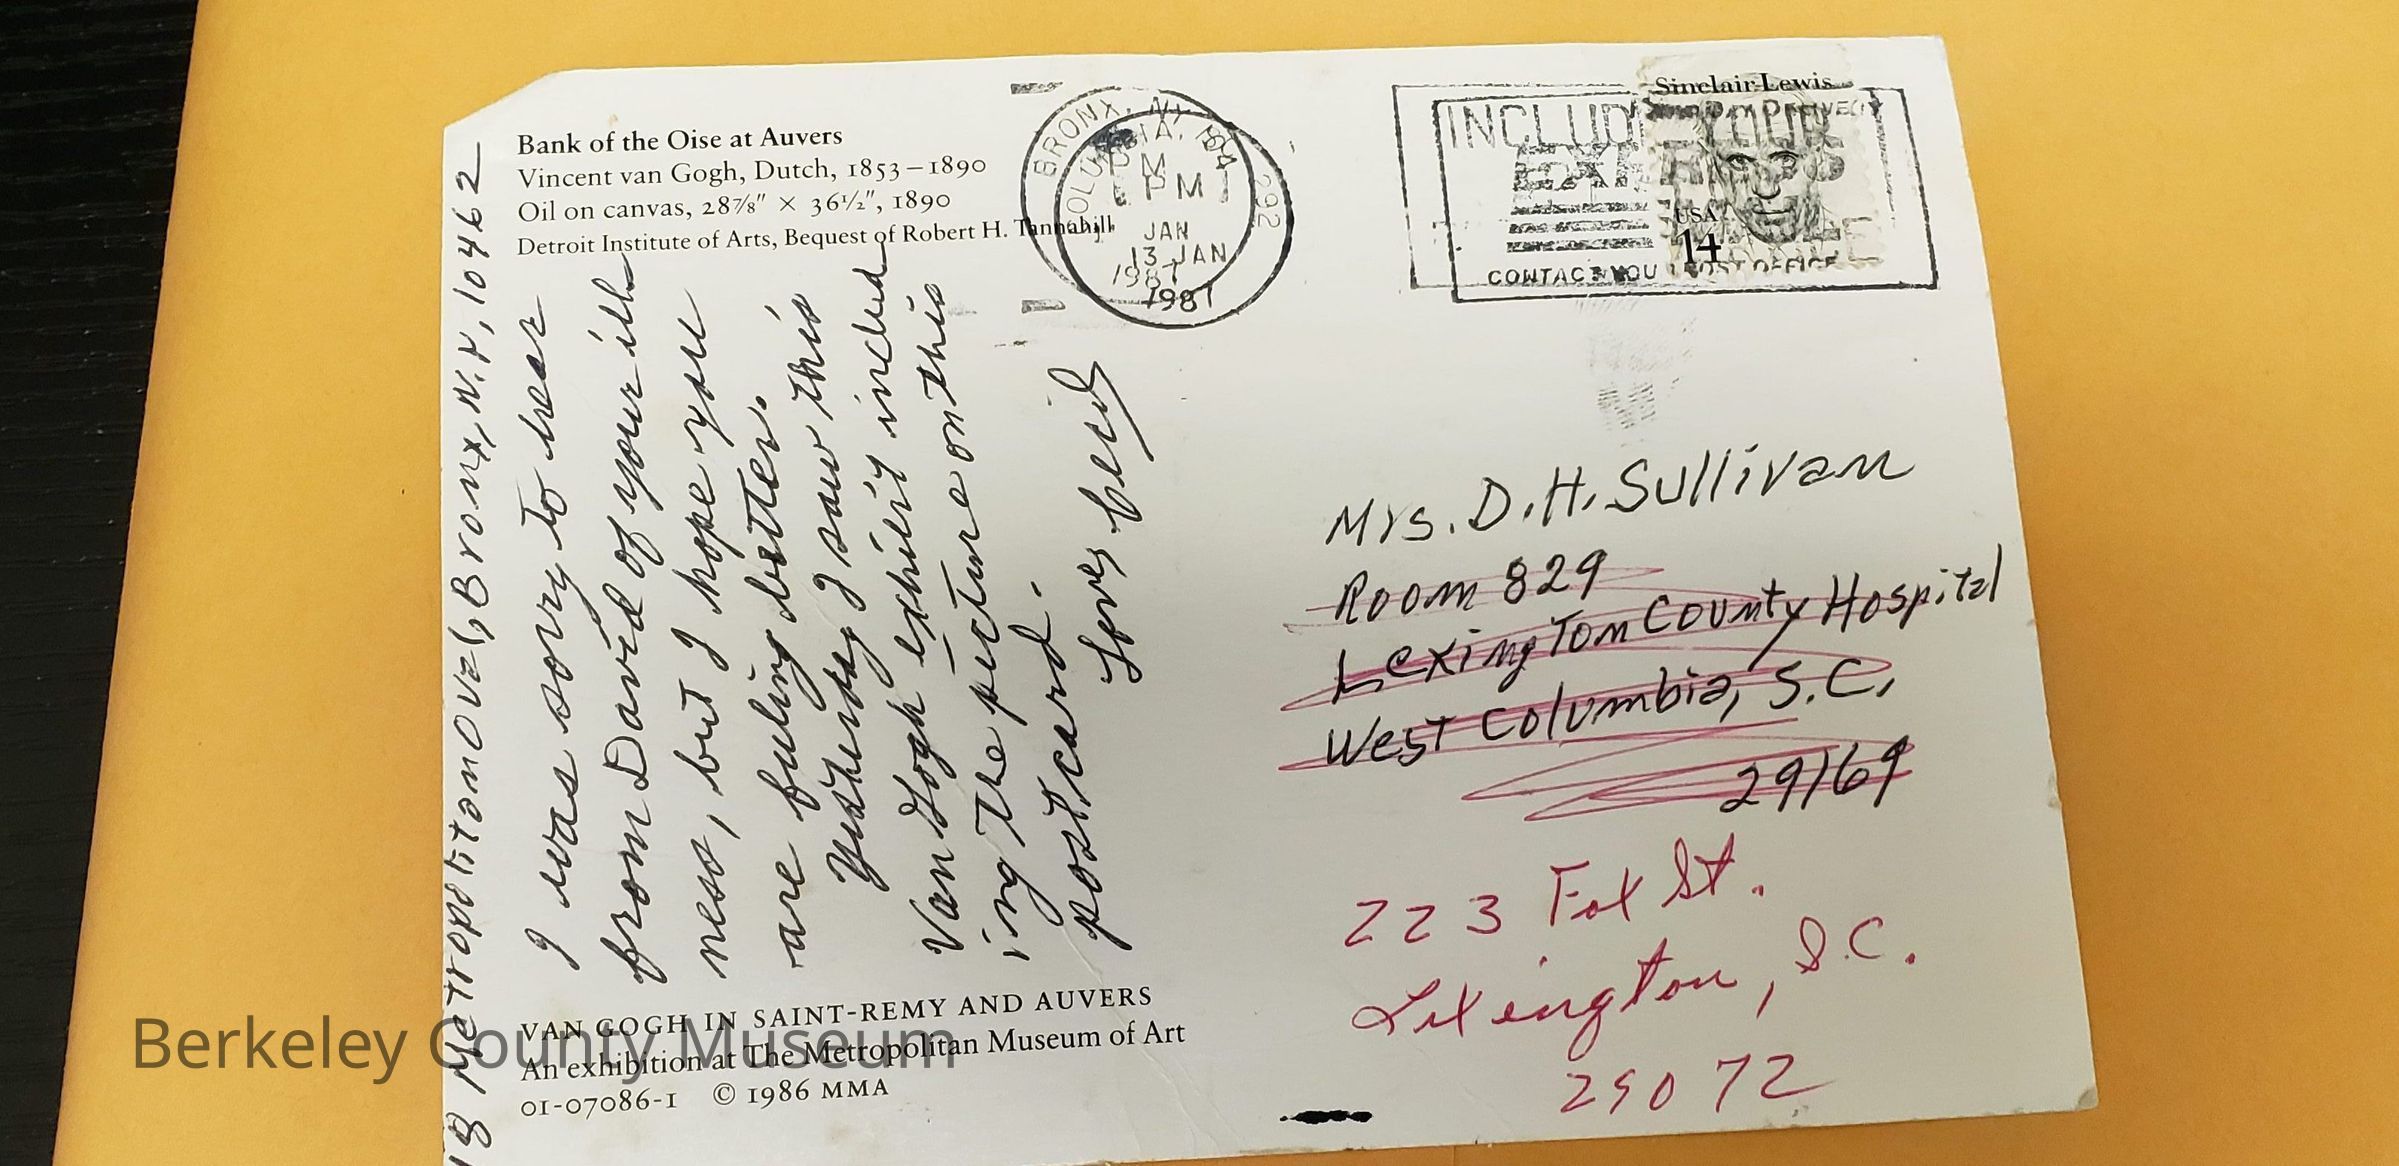 Bank of the Oise at Auvers
Vincent van Gogh, Dutch, 1853–1890
Oil on canvas, 28⅞" × 36½", 1890
Detroit Institute of Arts, Bequest of Robert H. Tannahill
18 Metropolitan Oval, Bronx, N.Y, 10462
I was sorry to hear
from David of your ill
ness, but I hope you
are feeling better.
Yesterday I saw this
Van Gogh exhibit includ
ing the picture on this
postcard.
Love,
VAN GOGH IN SAINT-REMY AND AUVERS
An exhibition at The Metropolitan Museum of Art
01-07086-1 © 1986 MMA
BRONX, NY 104
PM
PM
JAN
13 JAN
1987
1987
292
Sinclair Lewis
INCLUDE YOUR
USA
14
CONTACT YOUR POST OFFICE
Mrs. D.H. Sullivan
Room 829
Lexington County Hospital
West Columbia, S.C.
29169
223 Fox St.
Lexington, S.C.
29072
Berkeley County Museum